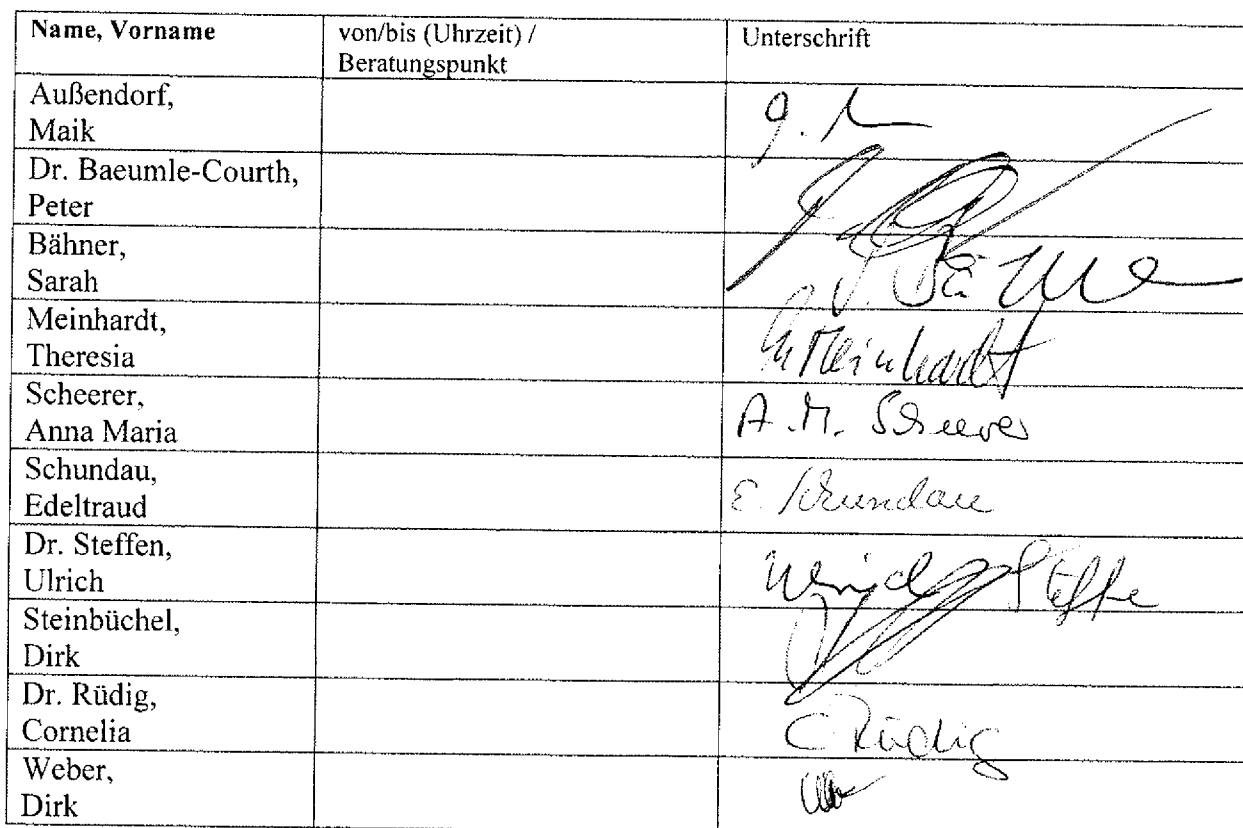 Name, Vorname von/bis (Uhrzeit) / Unterschrift
Beratungspunkt
Außendorf,
Maik
Dr. Baeumle-Courth,
Peter
Bähner,
Sarah
Meinhardt,
Theresia Meinhardt
Scheerer,
Anna Maria A. M. Scheerer
Schundau,
Edeltraud E. Schundau
Dr. Steffen,
Ulrich Ulrich Steffe
Steinbüchel,
Dirk
Dr. Rüdig,
Cornelia C Rüdig
Weber,
Dirk